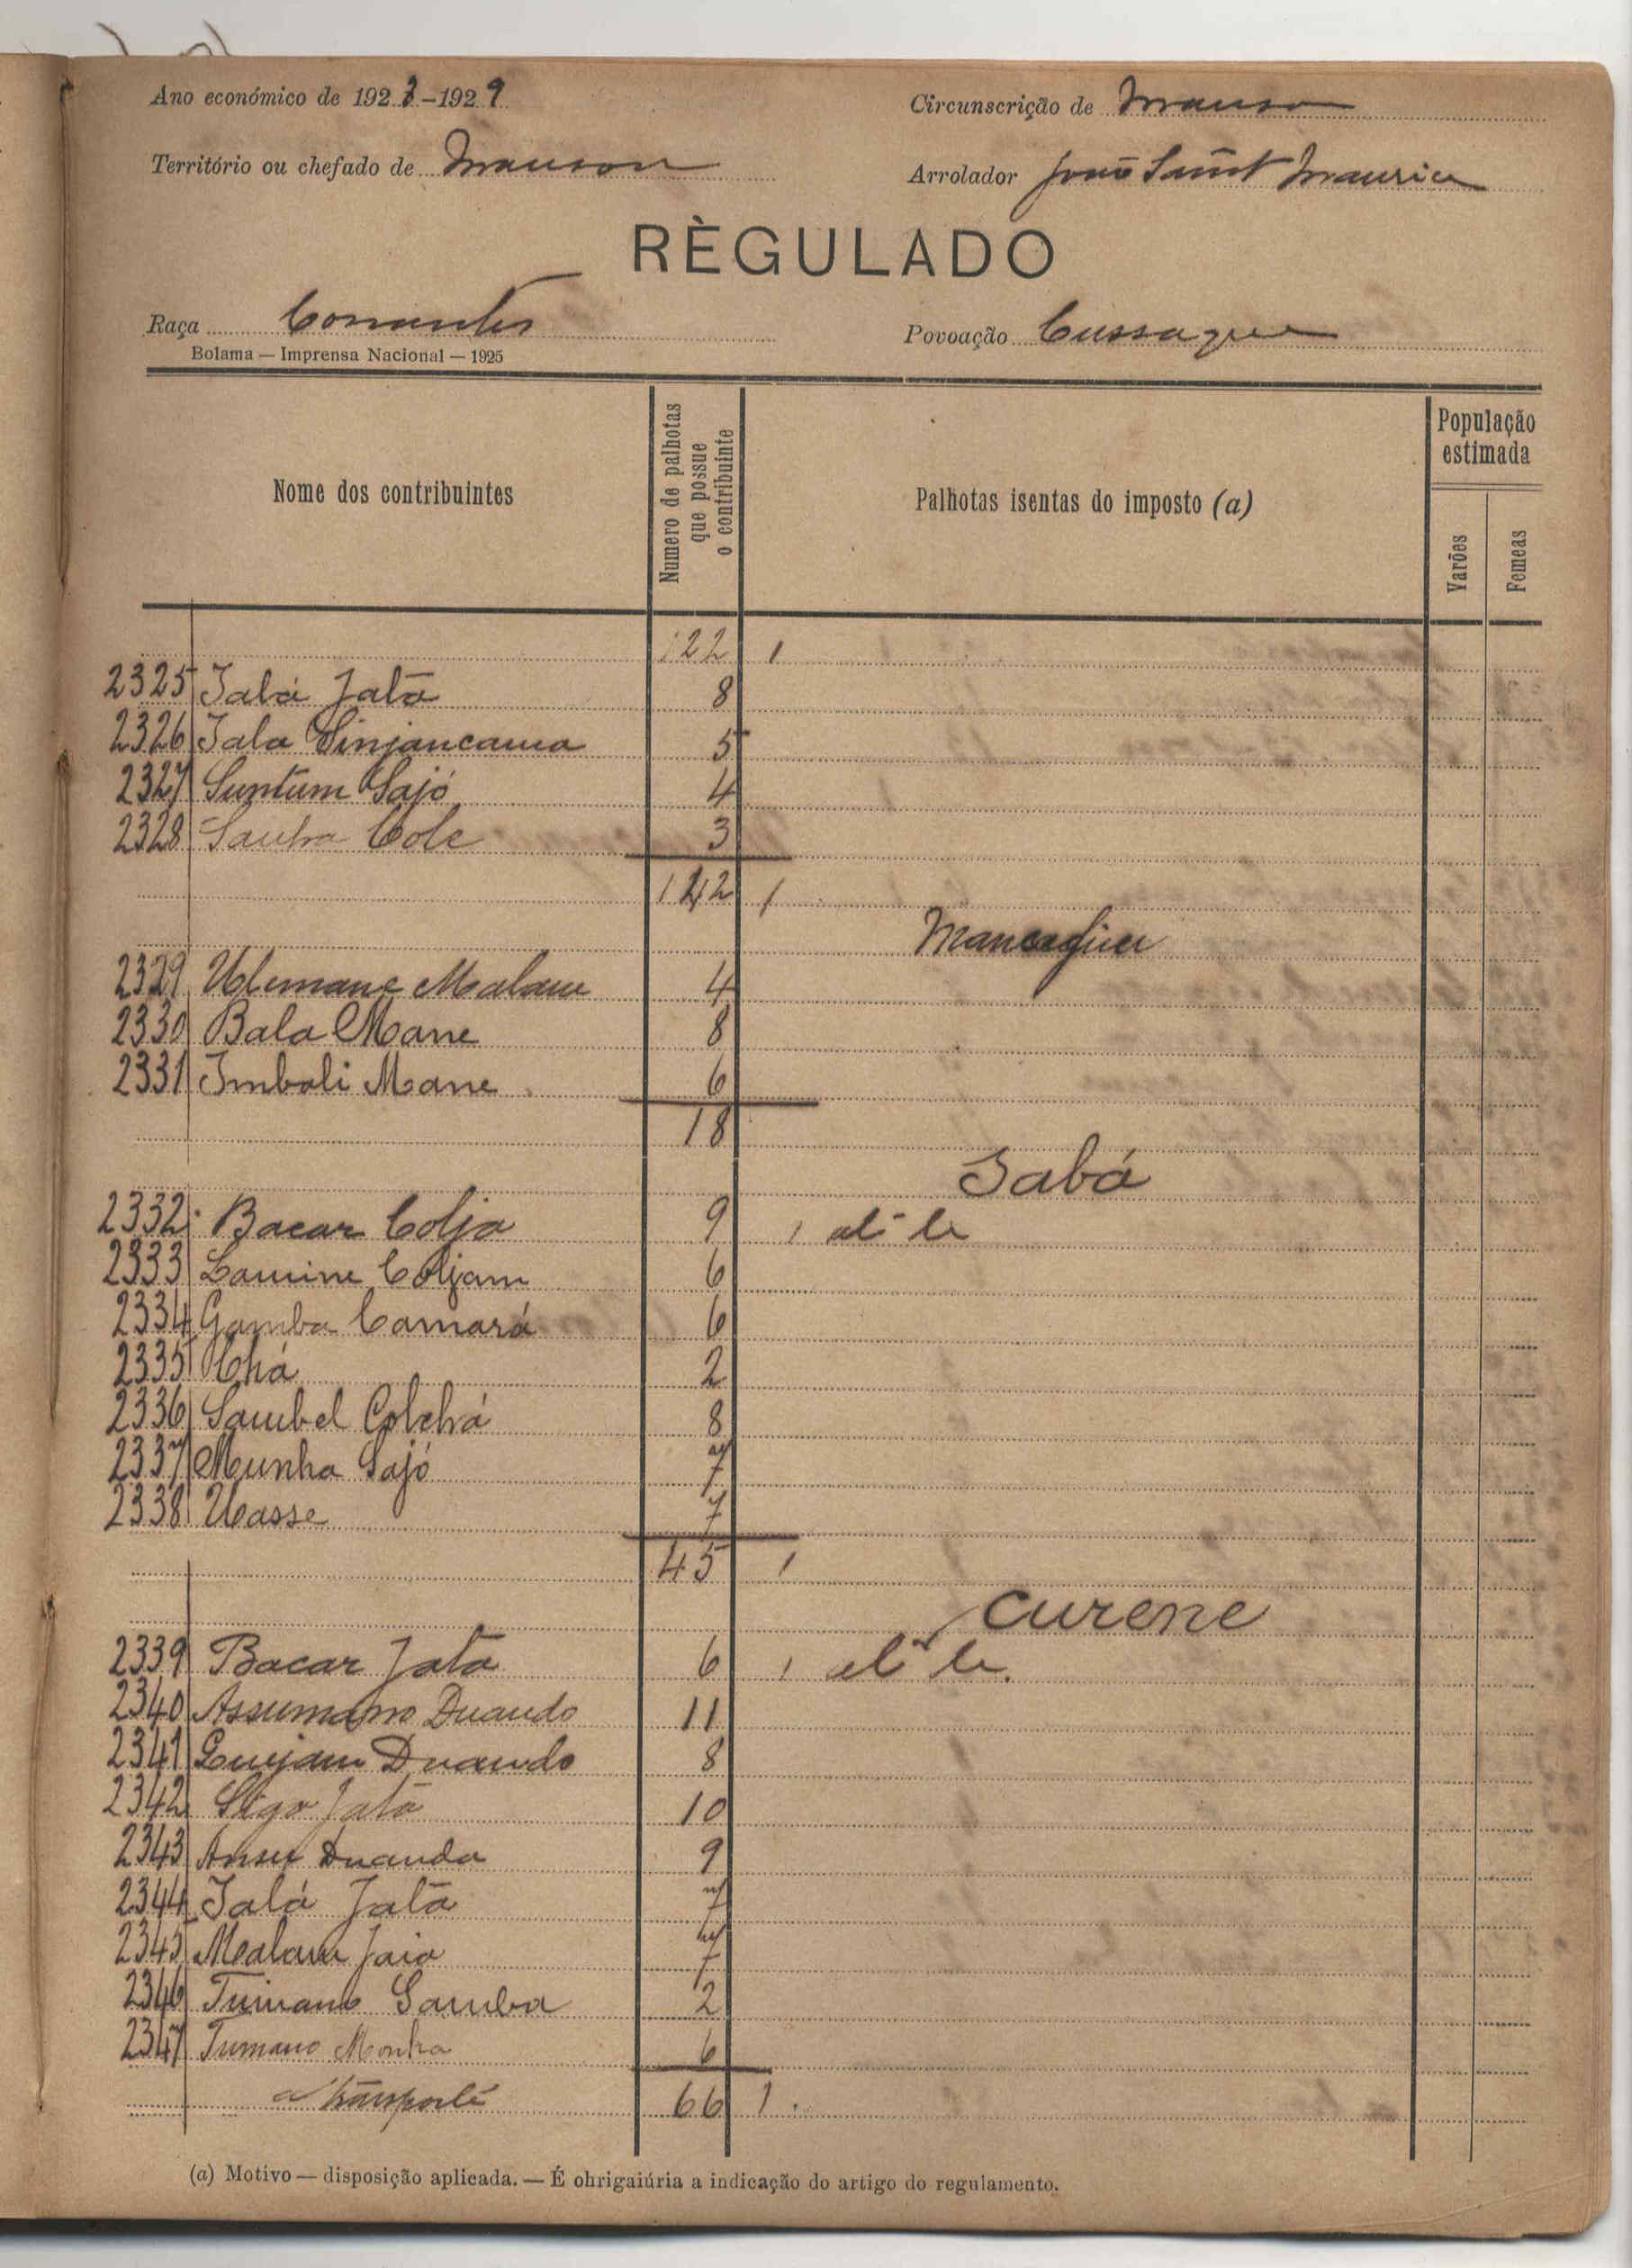 Ano económico de 1928-1929
Circunscrição de Mansoa
Território ou chefado de Manson
Arrolador João Saint Maurice
RÈGULADO
Raça
Povoação Cussaque
Bolama — Imprensa Nacional — 1925
Nome dos contribuintes
Numero de palhotas que possue o contribuinte
Palhotas isentas do imposto (a)
População estimada
Varões
Femeas
122 1
2325 Jabá Jatã 8
2326 Jala Sinjancama 5
2327 Suntum Sajó 4
2328 Cole 3
142 1
2329 Malam 4
2330 Bala Mane 8
2331 Imbali Mane 6
18
Jabá
2332 Bacar Colja 9 1
2333 Lamine Coljam 6
2334 Gamba Camará 6
2335 Chá 2
2336 Sambel Colchá 8
2337 Munha Sajó 7
2338 Uasse 7
45 1
Curene
2339 Bacar Jatã 6 1
2340 Assumano Duando 11
2341 Duando 8
2342 Jatã 10
2343 Ansu Duanda 9
2344 Jalá Jatã 7
2345 Malam Jaia 7
2346 Tumano Samba 2
2347 Tumano Monha 6
a transporte 66 1
(a) Motivo — disposição aplicada. — É ohrigaiúria a indicação do artigo do regulamento.